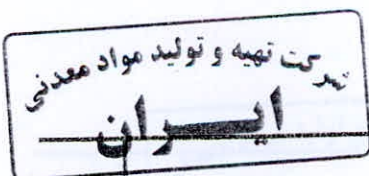 شرکت تهیه و تولید مواد معدنی
ایـــران